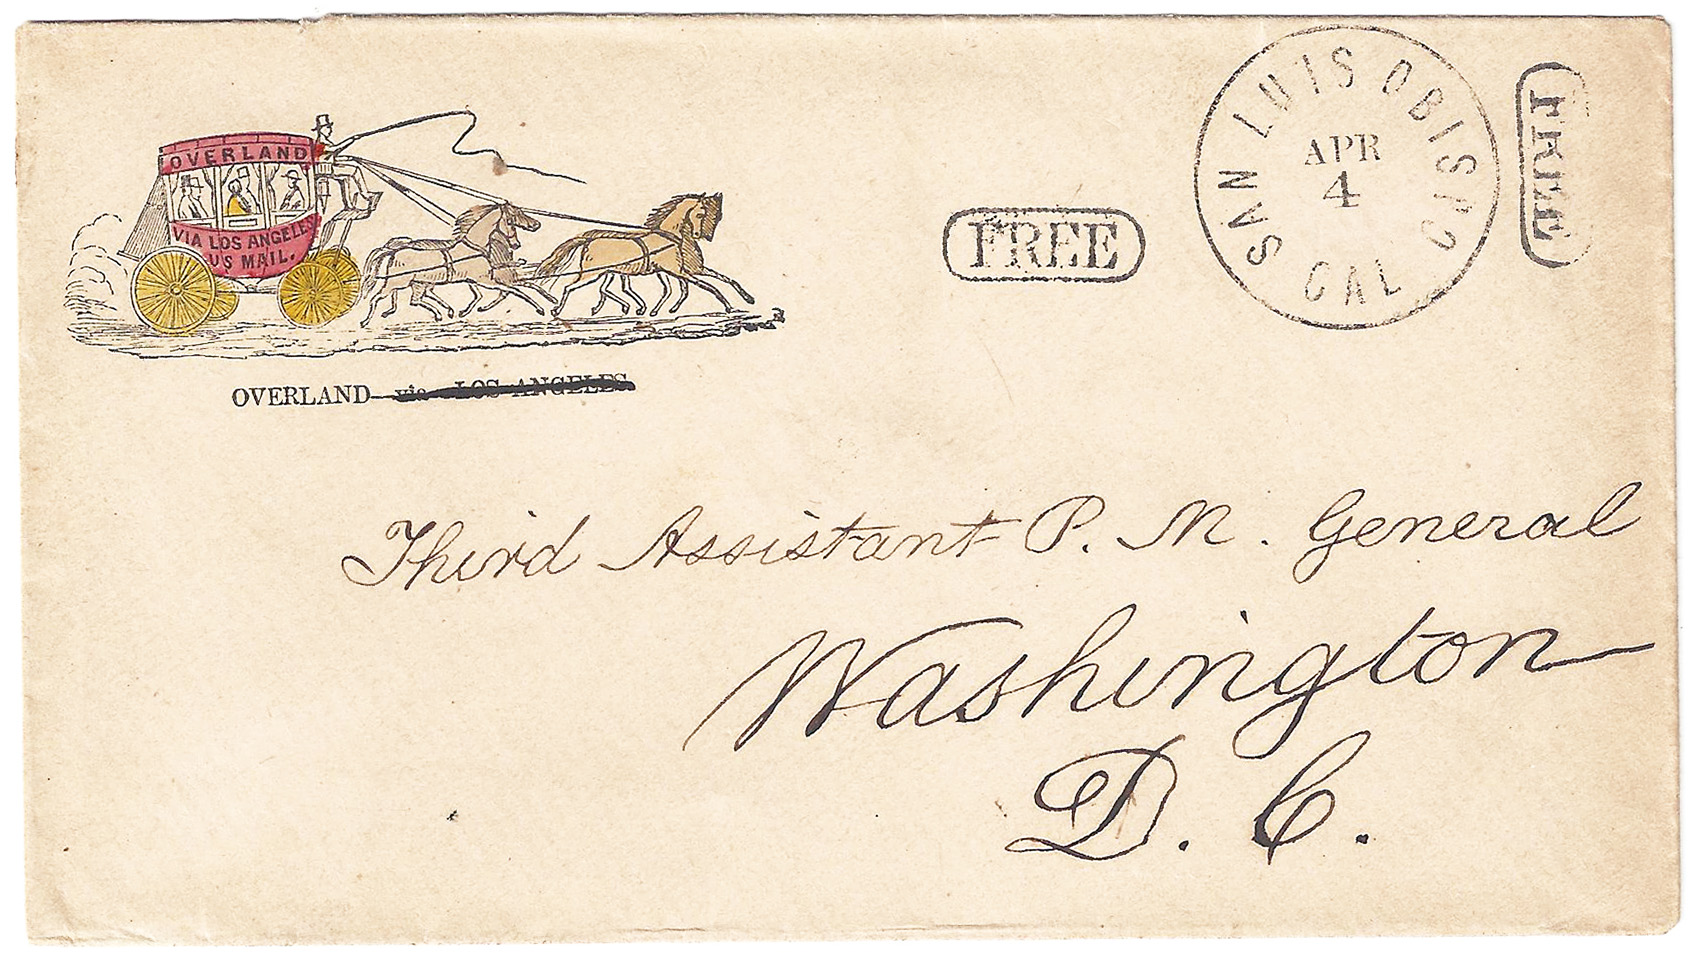 OVERLAND
VIA LOS ANGELES
US MAIL.
OVERLAND via LOS ANGELES.
FREE
SAN LUIS OBISPO
APR
4
CAL
FREE
Third Assistant P. M. General
Washington
D. C.